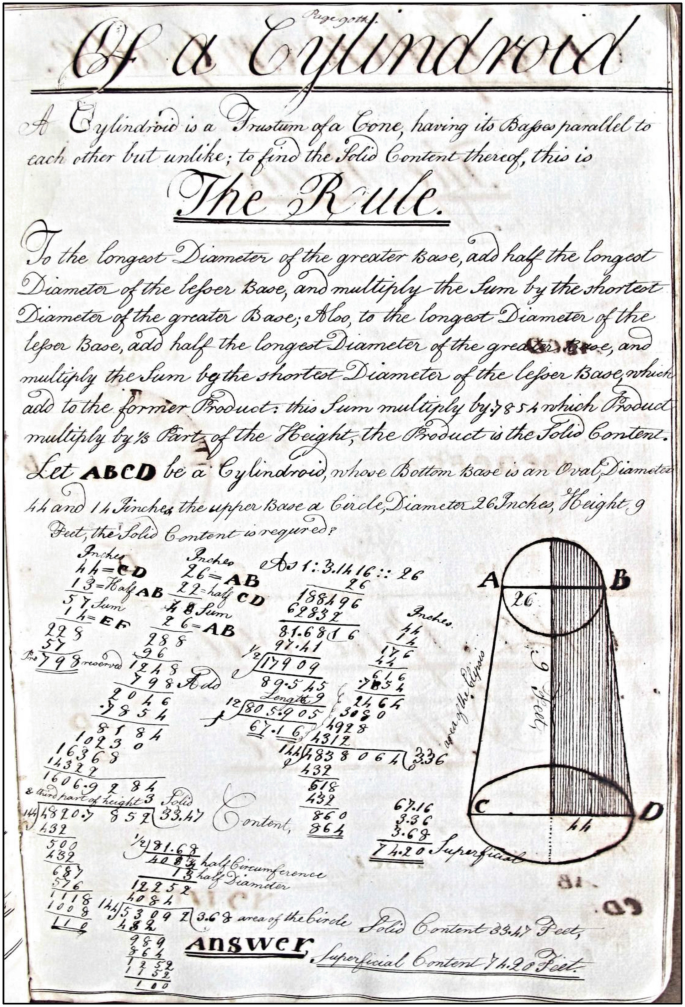 Page 90th
Of a Cylindroid
A Cylindroid is a Frustum of a Cone, having its Basses parallel to
each other but unlike; to find the Solid Content thereof, this is
The Rule.
To the longest Diameter of the greater Base, add half the longest
Diameter of the lesser Base, and multiply the Sum by the shortest
Diameter of the greater Base; Also, to the longest Diameter of the
lesser Base, add half the longest Diameter of the greater Base, and
multiply the Sum by the shortest Diameter of the lesser Base, which
add to the former Product: this Sum multiply by .7854 which Product
multiply by ⅓ Part of the Height, the Product is the Solid Content.
Let ABCD be a Cylindroid, whose Bottom Base is an Oval, Diameter
44 and 14 Inches, the upper Base a Circle, Diameter 26 Inches, Height 9
Feet, the Solid Content is required?
Inches
44 = CD
13 = Half AB
57 Sum
14 = EF
228
57
798 reserved
Inches
26 = AB
22 = half CD
48 Sum
26 = AB
288
96
1248
798 Add
2046
.7854
8184
10230
16368
14322
1606.9284
& third part of height 3
Solid
144)4820.7852(33.47
Content,
432
500
432
687
576
1118
1008
110
As 1 : 3.1416 :: 26
26
188496
62832
81.6816
97.41
½)179.09
89.545
Length 9
12)805.905
67.16
Inches
44
14
176
44
616
.7854
2464
3080
4928
4312
144)483.8064(3.36
432
518
432
860
864
area of the Elipsis
½)81.68
40.84 half Circumference
13 half Diameter
12252
4084
144)530.92(3.68 area of the Circle
432
989
864
1252
1152
100
67.16
3.36
3.68
74.20 Superficial
A
B
26
9 Feet
C
D
44
Answer
Solid Content 33.47 Feet,
Superficial Content 74.20 Feet.